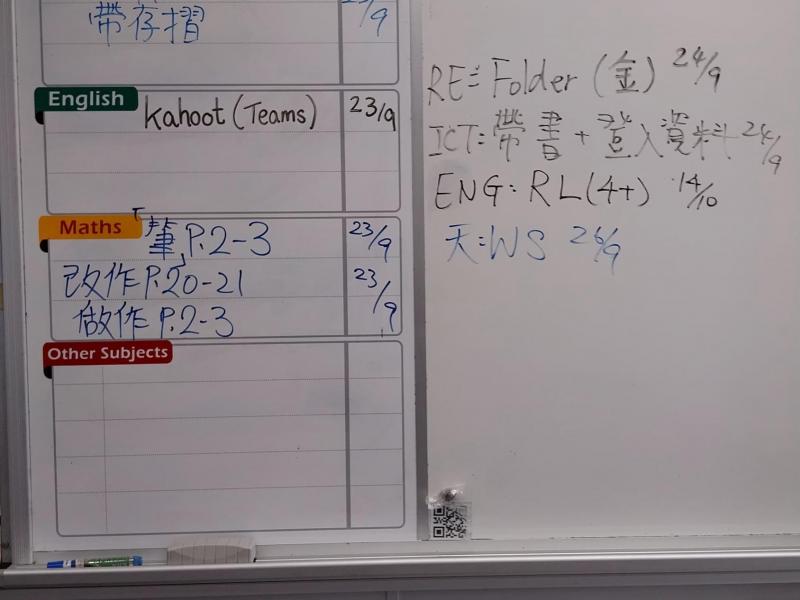 帶存摺
English
Kahoot (Teams) 23/9
Maths
「筆」P.2-3 23/9
改作 P.20-21 23/9
做作 P.2-3
Other Subjects
RE: Folder (金) 24/9
ICT: 帶書 + 登入資料 24/9
ENG: RL(4+) 14/10
天: WS 26/9